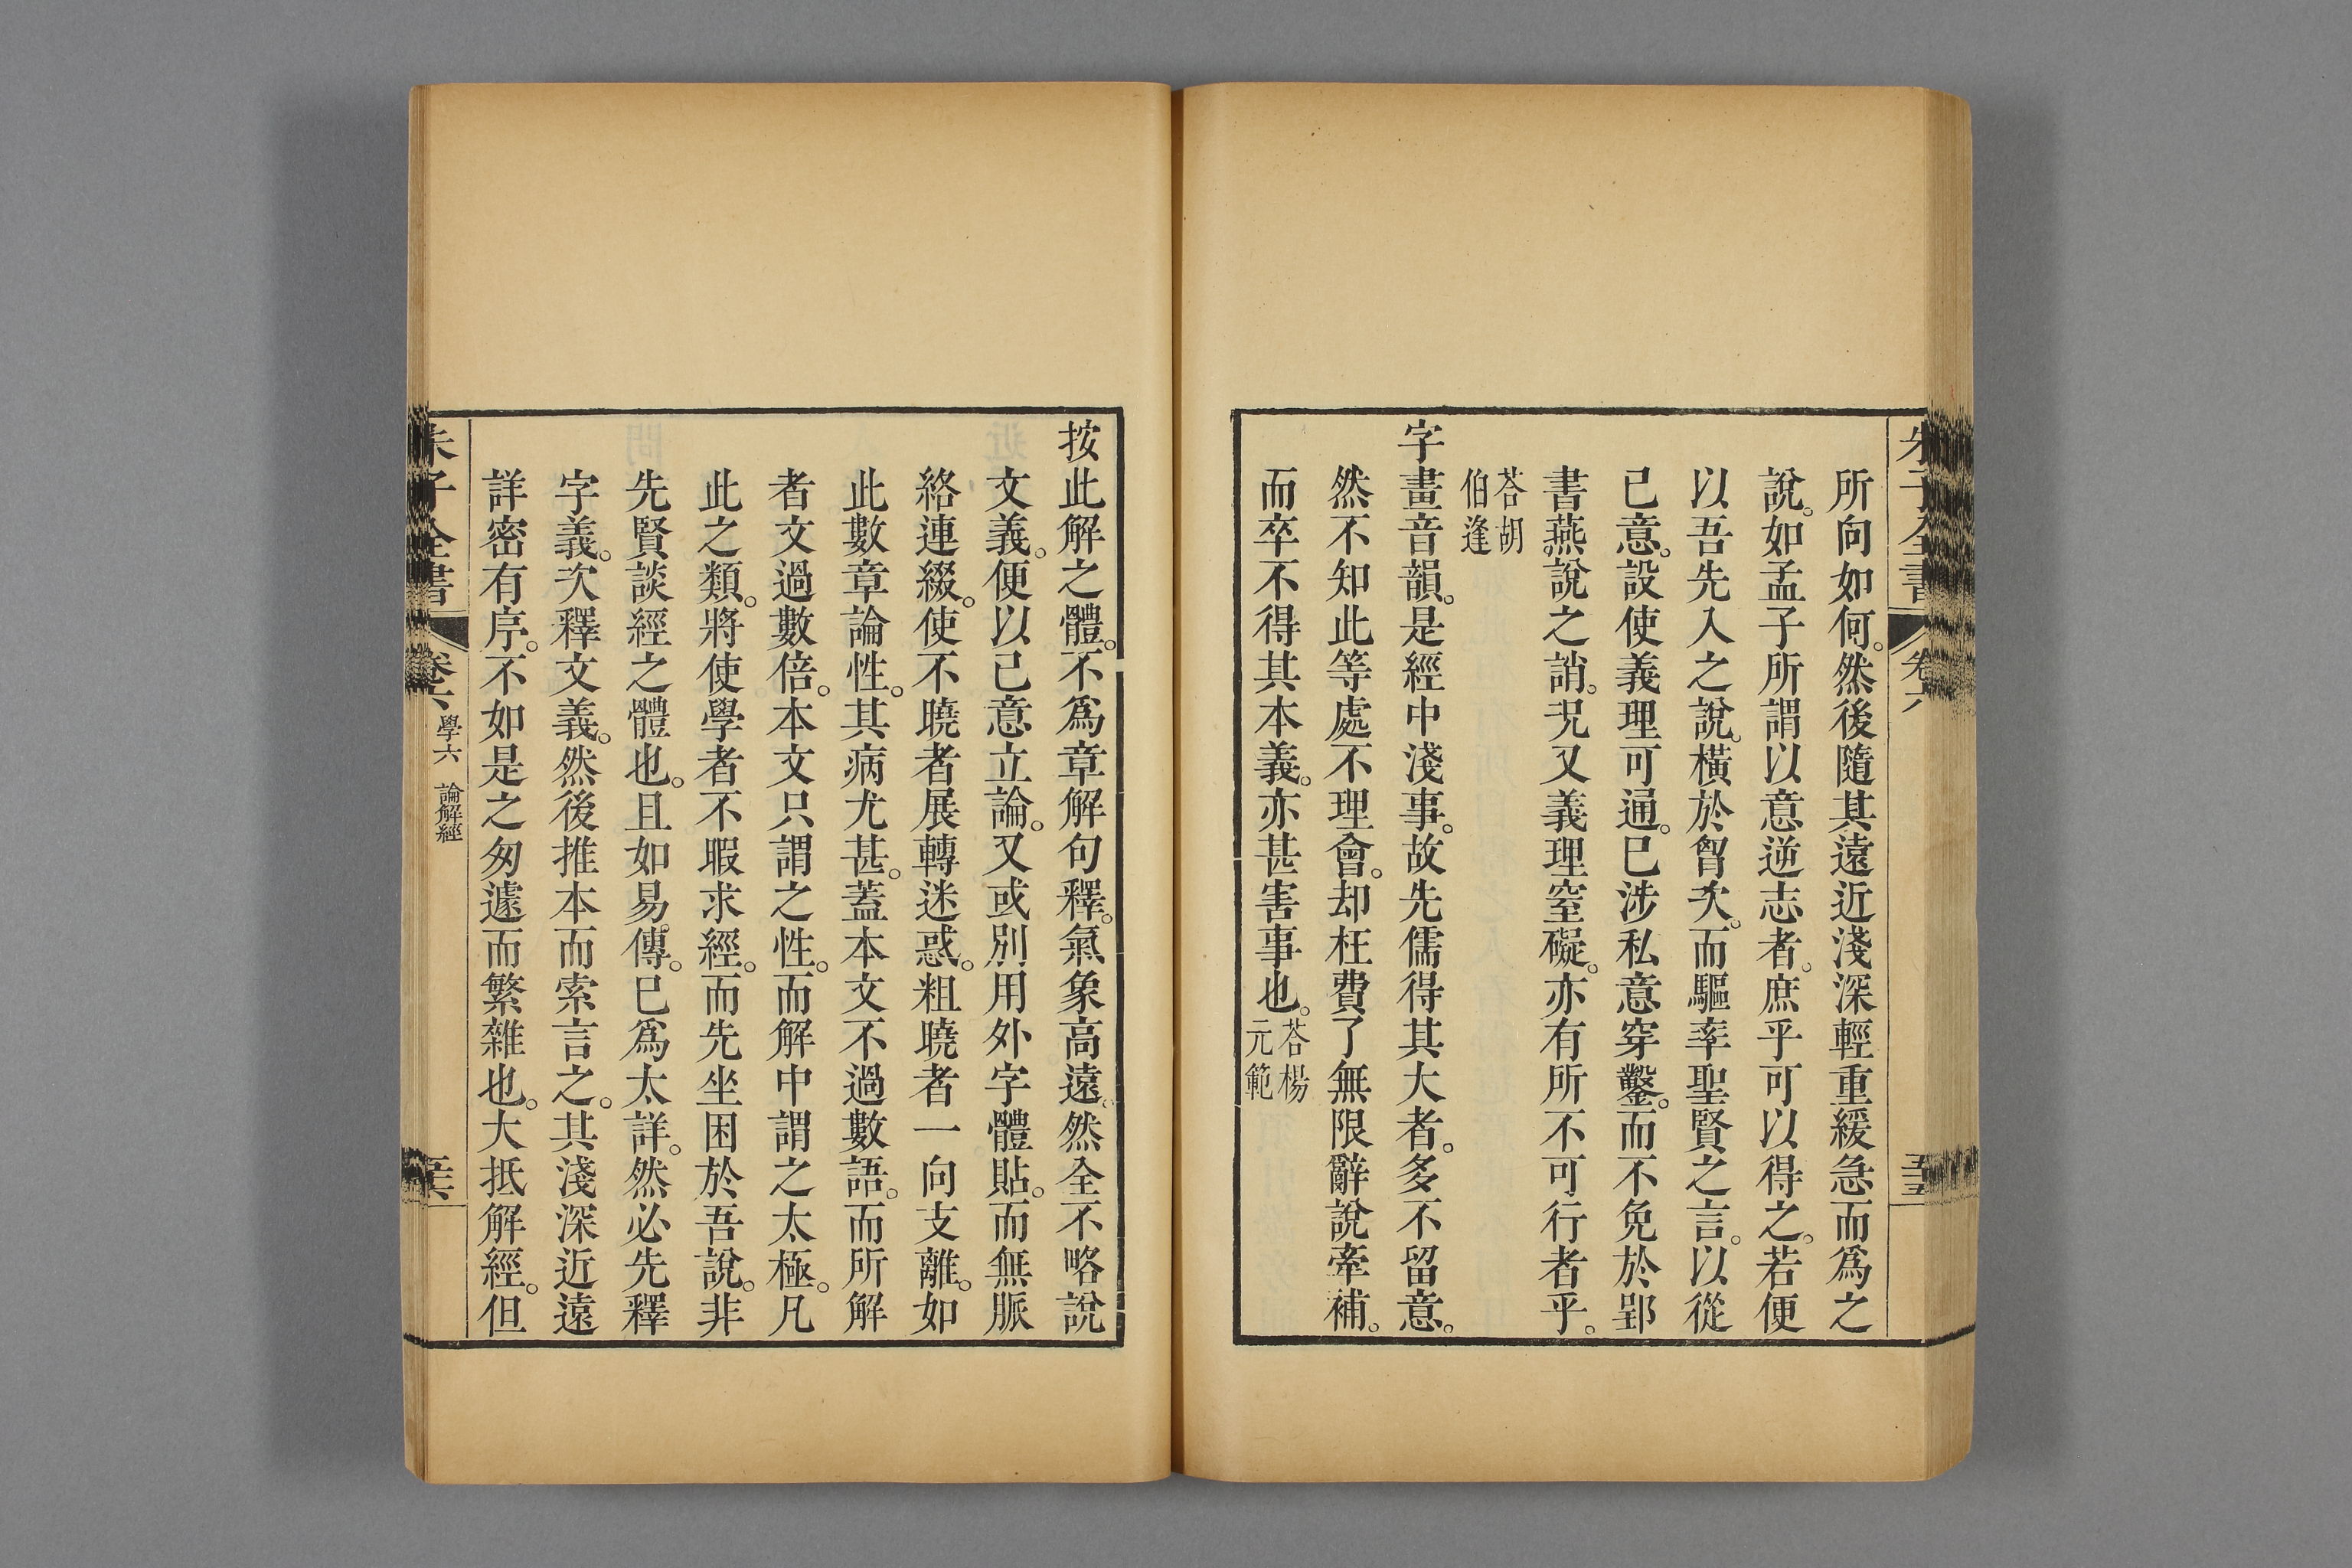 朱子全書 卷六 五十五
所向如何。然後隨其遠近淺深輕重緩急而爲之
說。如孟子所謂以意逆志者。庶乎可以得之。若便
以吾先入之說。橫於胷次。而驅率聖賢之言。以從
己意。設使義理可通。已涉私意穿鑿。而不免於郢
書燕說之誚。况又義理窒礙。亦有所不可行者乎。
荅胡
伯逢
字畫音韻。是經中淺事。故先儒得其大者。多不留意。
然不知此等處不理會。却枉費了無限辭說牽補。
而卒不得其本義。亦甚害事也。荅楊元範
按此解之體。不爲章解句釋。氣象高遠。然全不略說
文義。便以己意立論。又或別用外字體貼。而無脈
絡連綴。使不曉者展轉迷惑。粗曉者一向支離。如
此數章論性。其病尤甚。蓋本文不過數語。而所解
者文過數倍。本文只謂之性。而解中謂之太極。凡
此之類。將使學者不暇求經。而先坐困於吾說。非
先賢談經之體也。且如易傳。已爲太詳。然必先釋
字義。次釋文義。然後推本而索言之。其淺深近遠
詳密有序。不如是之匆遽而繁雜也。大抵解經。但
朱子全書 卷六 學六 論解經